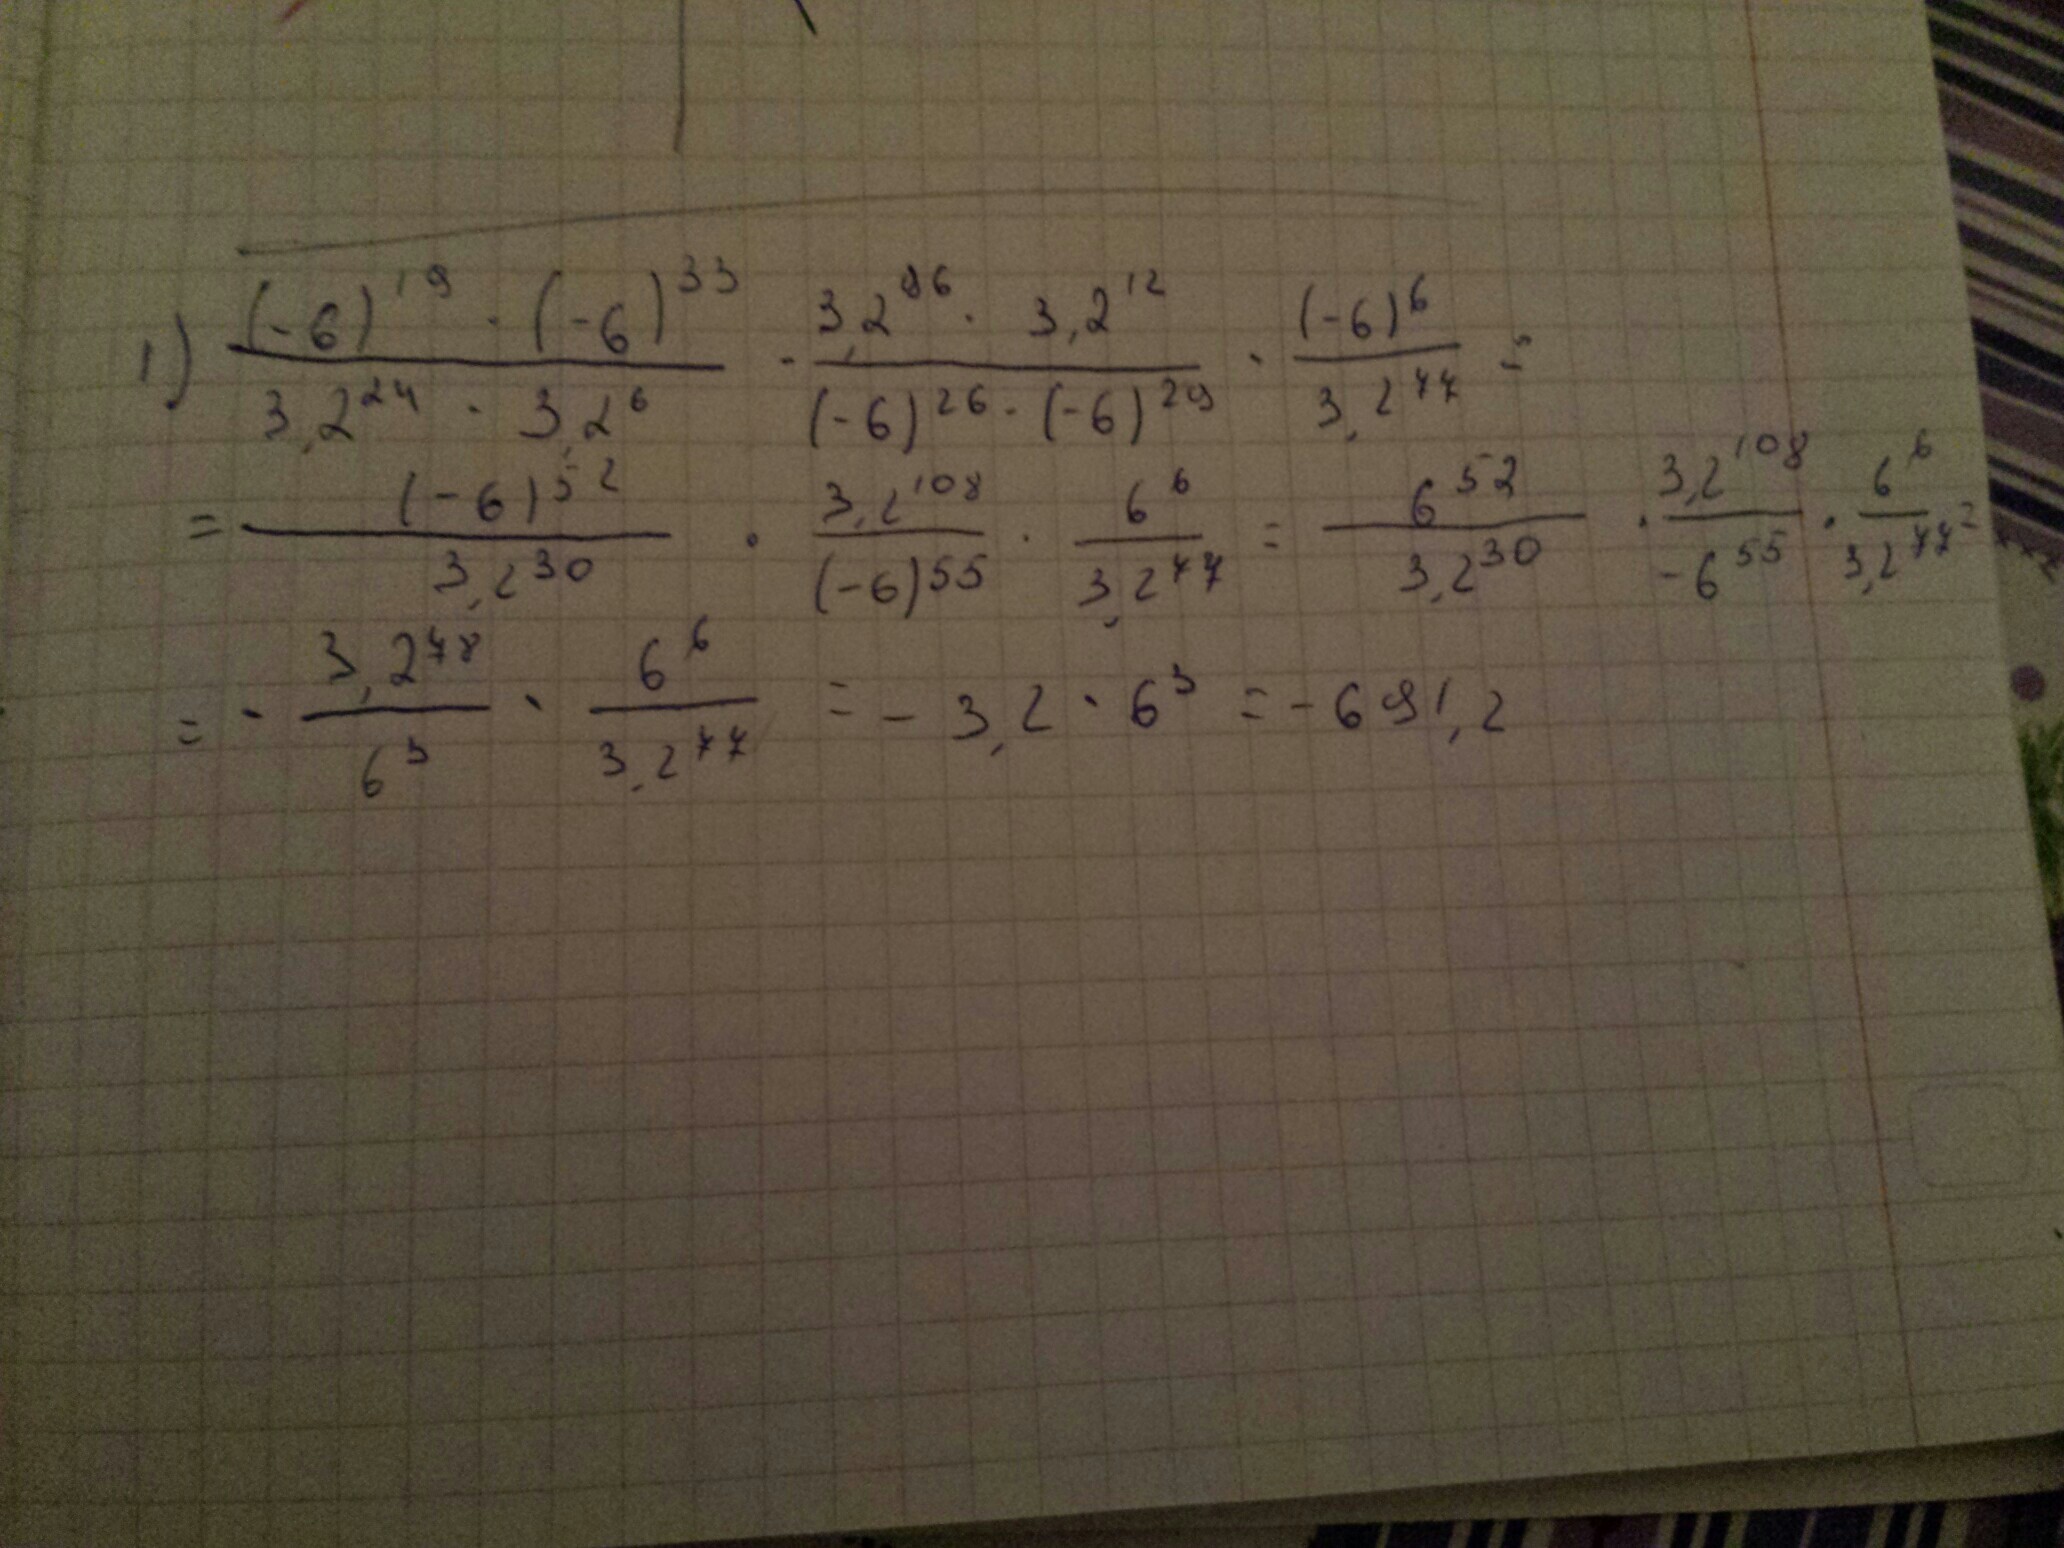 1) \frac{(-6)^{19} \cdot (-6)^{33}}{3,2^{24} \cdot 3,2^{6}} \cdot \frac{3,2^{96} \cdot 3,2^{12}}{(-6)^{26} \cdot (-6)^{29}} \cdot \frac{(-6)^{6}}{3,2^{77}} =
= \frac{(-6)^{52}}{3,2^{30}} \cdot \frac{3,2^{108}}{(-6)^{55}} \cdot \frac{6^{6}}{3,2^{77}} = \frac{6^{52}}{3,2^{30}} \cdot \frac{3,2^{108}}{-6^{55}} \cdot \frac{6^{6}}{3,2^{77}} =
= - \frac{3,2^{78}}{6^{3}} \cdot \frac{6^{6}}{3,2^{77}} = - 3,2 \cdot 6^{3} = - 691,2